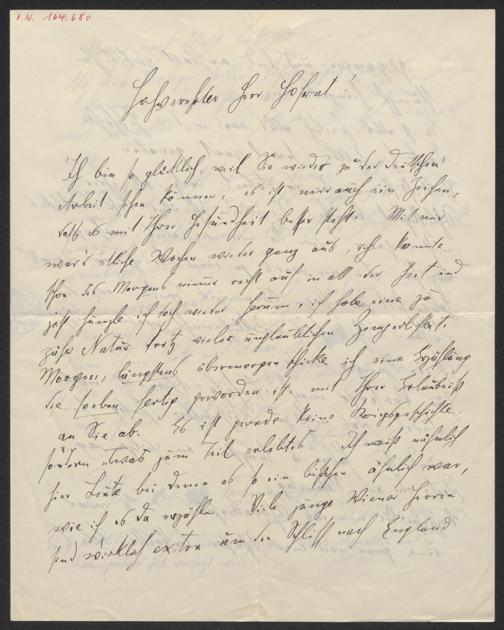 I.N. 164.680
Hochverehrter Herr Hofrat!
Ich bin so glücklich, weil Sie wieder zu der deutschen
Arbeit sehen können, es ist mir auch ein Zeichen,
dass es mit Ihrer Gesundheit besser steht. Mit mir
war's etliche Wochen wieder ganz aus, ich konnte
schon des Morgens nimmer recht auf in all der Zeit und
jetzt hunzle ich doch wieder herum, ich habe eine zu
zähe Natur trotz vieler unglaublichen Zimperlichkeit.
Morgen, längstens übermorgen schicke ich eine Erzählung
die soeben fertig geworden ist mit Ihrer Erlaubnis
an Sie ab. Es ist gerade keine Kriegsgeschichte
sondern etwas zum Teil erlebtes. Ich weiß nähmlich
hier Leute bei denen es so ein bißchen ähnlich war,
wie ich es da erzähle. Viele junge Wiener Herrn
sind wirklich extra um den Schliff nach England